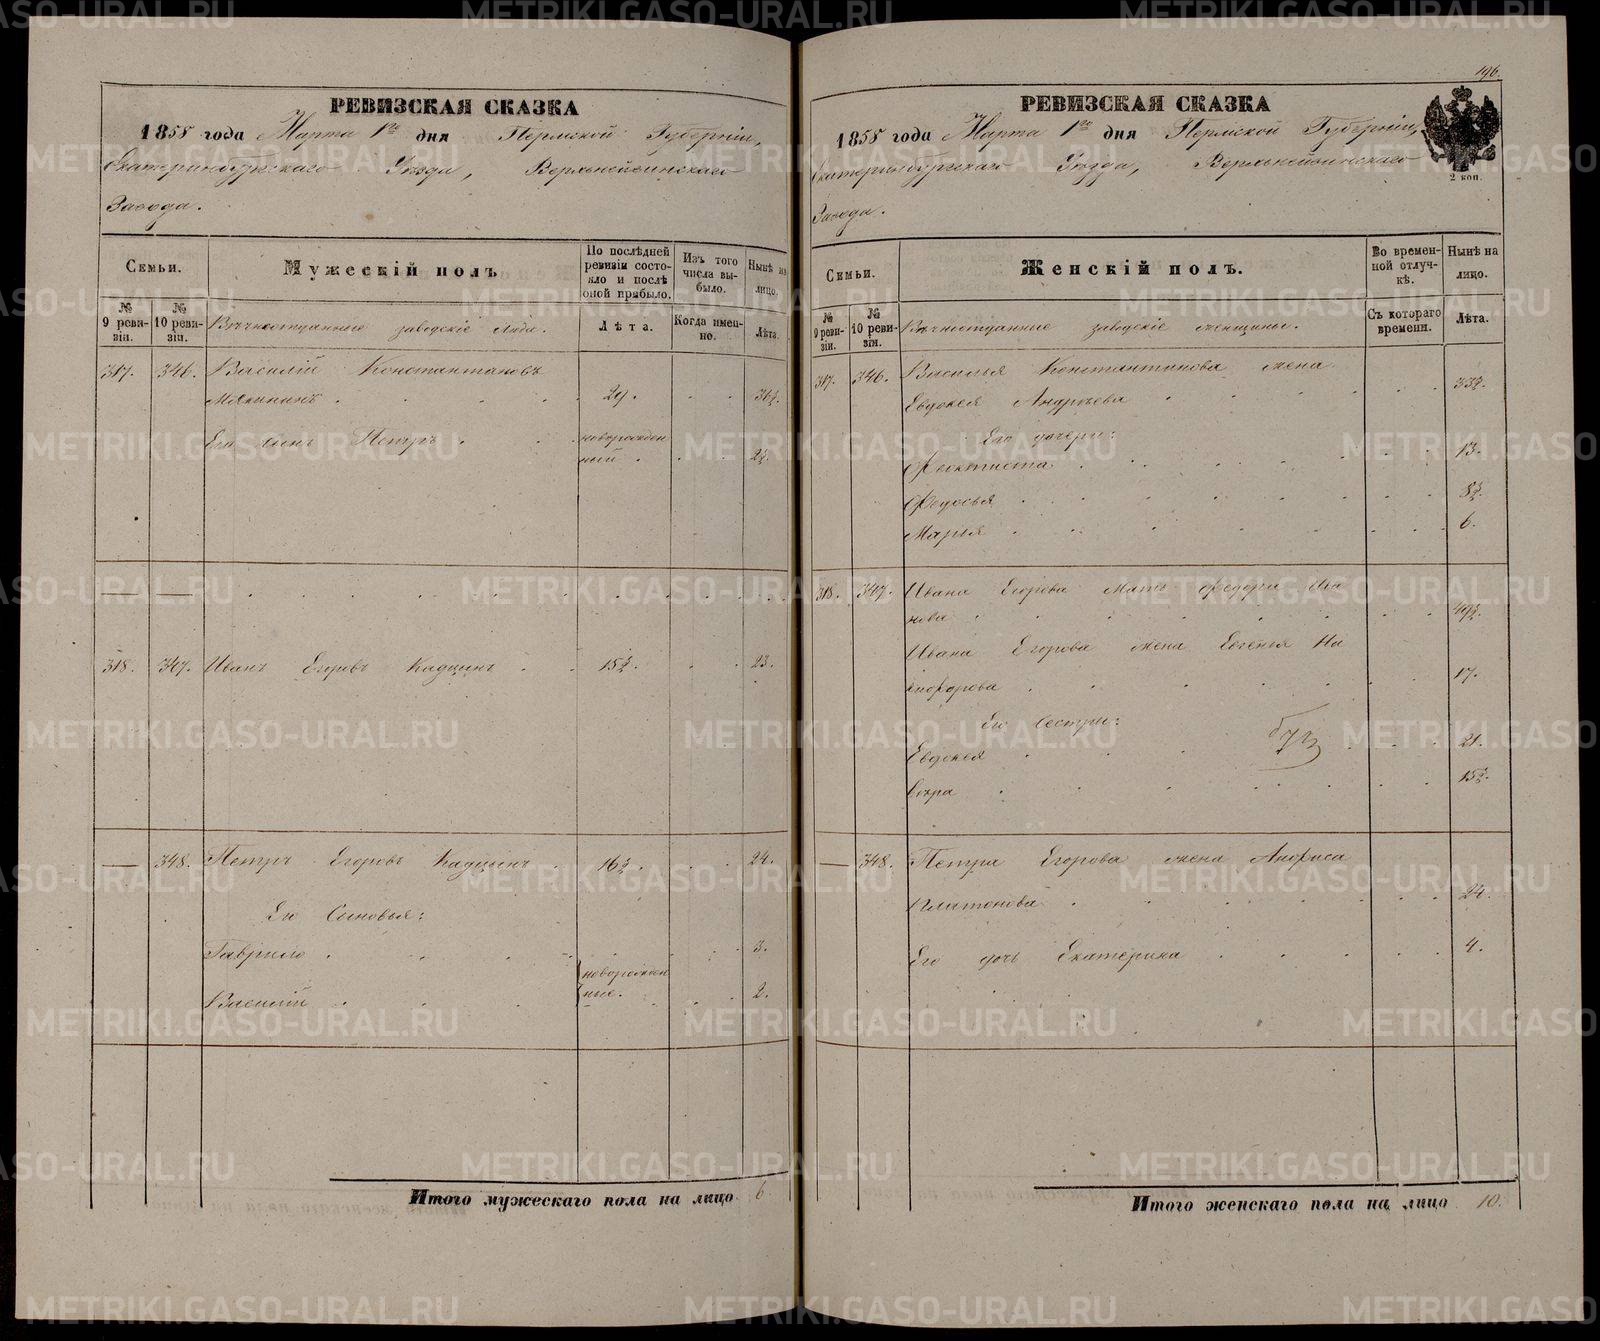 РЕВИЗСКАЯ СКАЗКА
1858 года Марта 1го дня Пермской Губерніи,
Екатеринбургскаго Уѣзда, Верхнейвинскаго
Завода.
Семьи.
Мужескій полъ
По послѣдней ревизіи состояло и послѣ оной прибыло.
Изъ того числа выбыло.
Нынѣ на лицо.
№ 9 ревизіи.
№ 10 ревизіи.
Вѣчноотданные заводскіе люди.
Лѣта.
Когда именно.
Лѣта.
317. 346. Василій Константиновъ
Мякининъ 29.
Его сынъ Петръ новорожден
ный
318. 347. Иванъ Егоровъ Кадцынъ 15½. 23.
348. Петръ Егоровъ Кадцынъ 16½. 24.
Его Сыновья:
Гаврило 3.
новорожден
ные.
Василій 2.
Итого мужескаго пола на лицо 6
196.
РЕВИЗСКАЯ СКАЗКА
1858 года Марта 1го дня Пермской Губерніи,
Екатеринбургскаго Уѣзда, Верхнейвинскаго
Завода.
2 коп.
Семьи.
Женскій полъ.
Во временной отлучкѣ.
Нынѣ на лицо.
№ 9 ревизіи.
№ 10 ревизіи.
Вѣчноотданные заводскіе женщины.
Съ котораго времени.
Лѣта.
317. 346. Василья Константинова жена
Евдокея Андреева
Его дочери:
Феоктиста 13.
Федосья
Марья 6.
318. 347. Ивана Егорова Мать Федора Ива
нова
Ивана Егорова жена Евгенья Ни
кифорова 17.
Его Сестры:
Евдокея 21.
Вѣра
348. Петра Егорова жена Анфиса
Платонова 24.
Его дочь Екатерина 4.
Итого женскаго пола на лицо 10.
METRIKI.GASO-URAL.RU